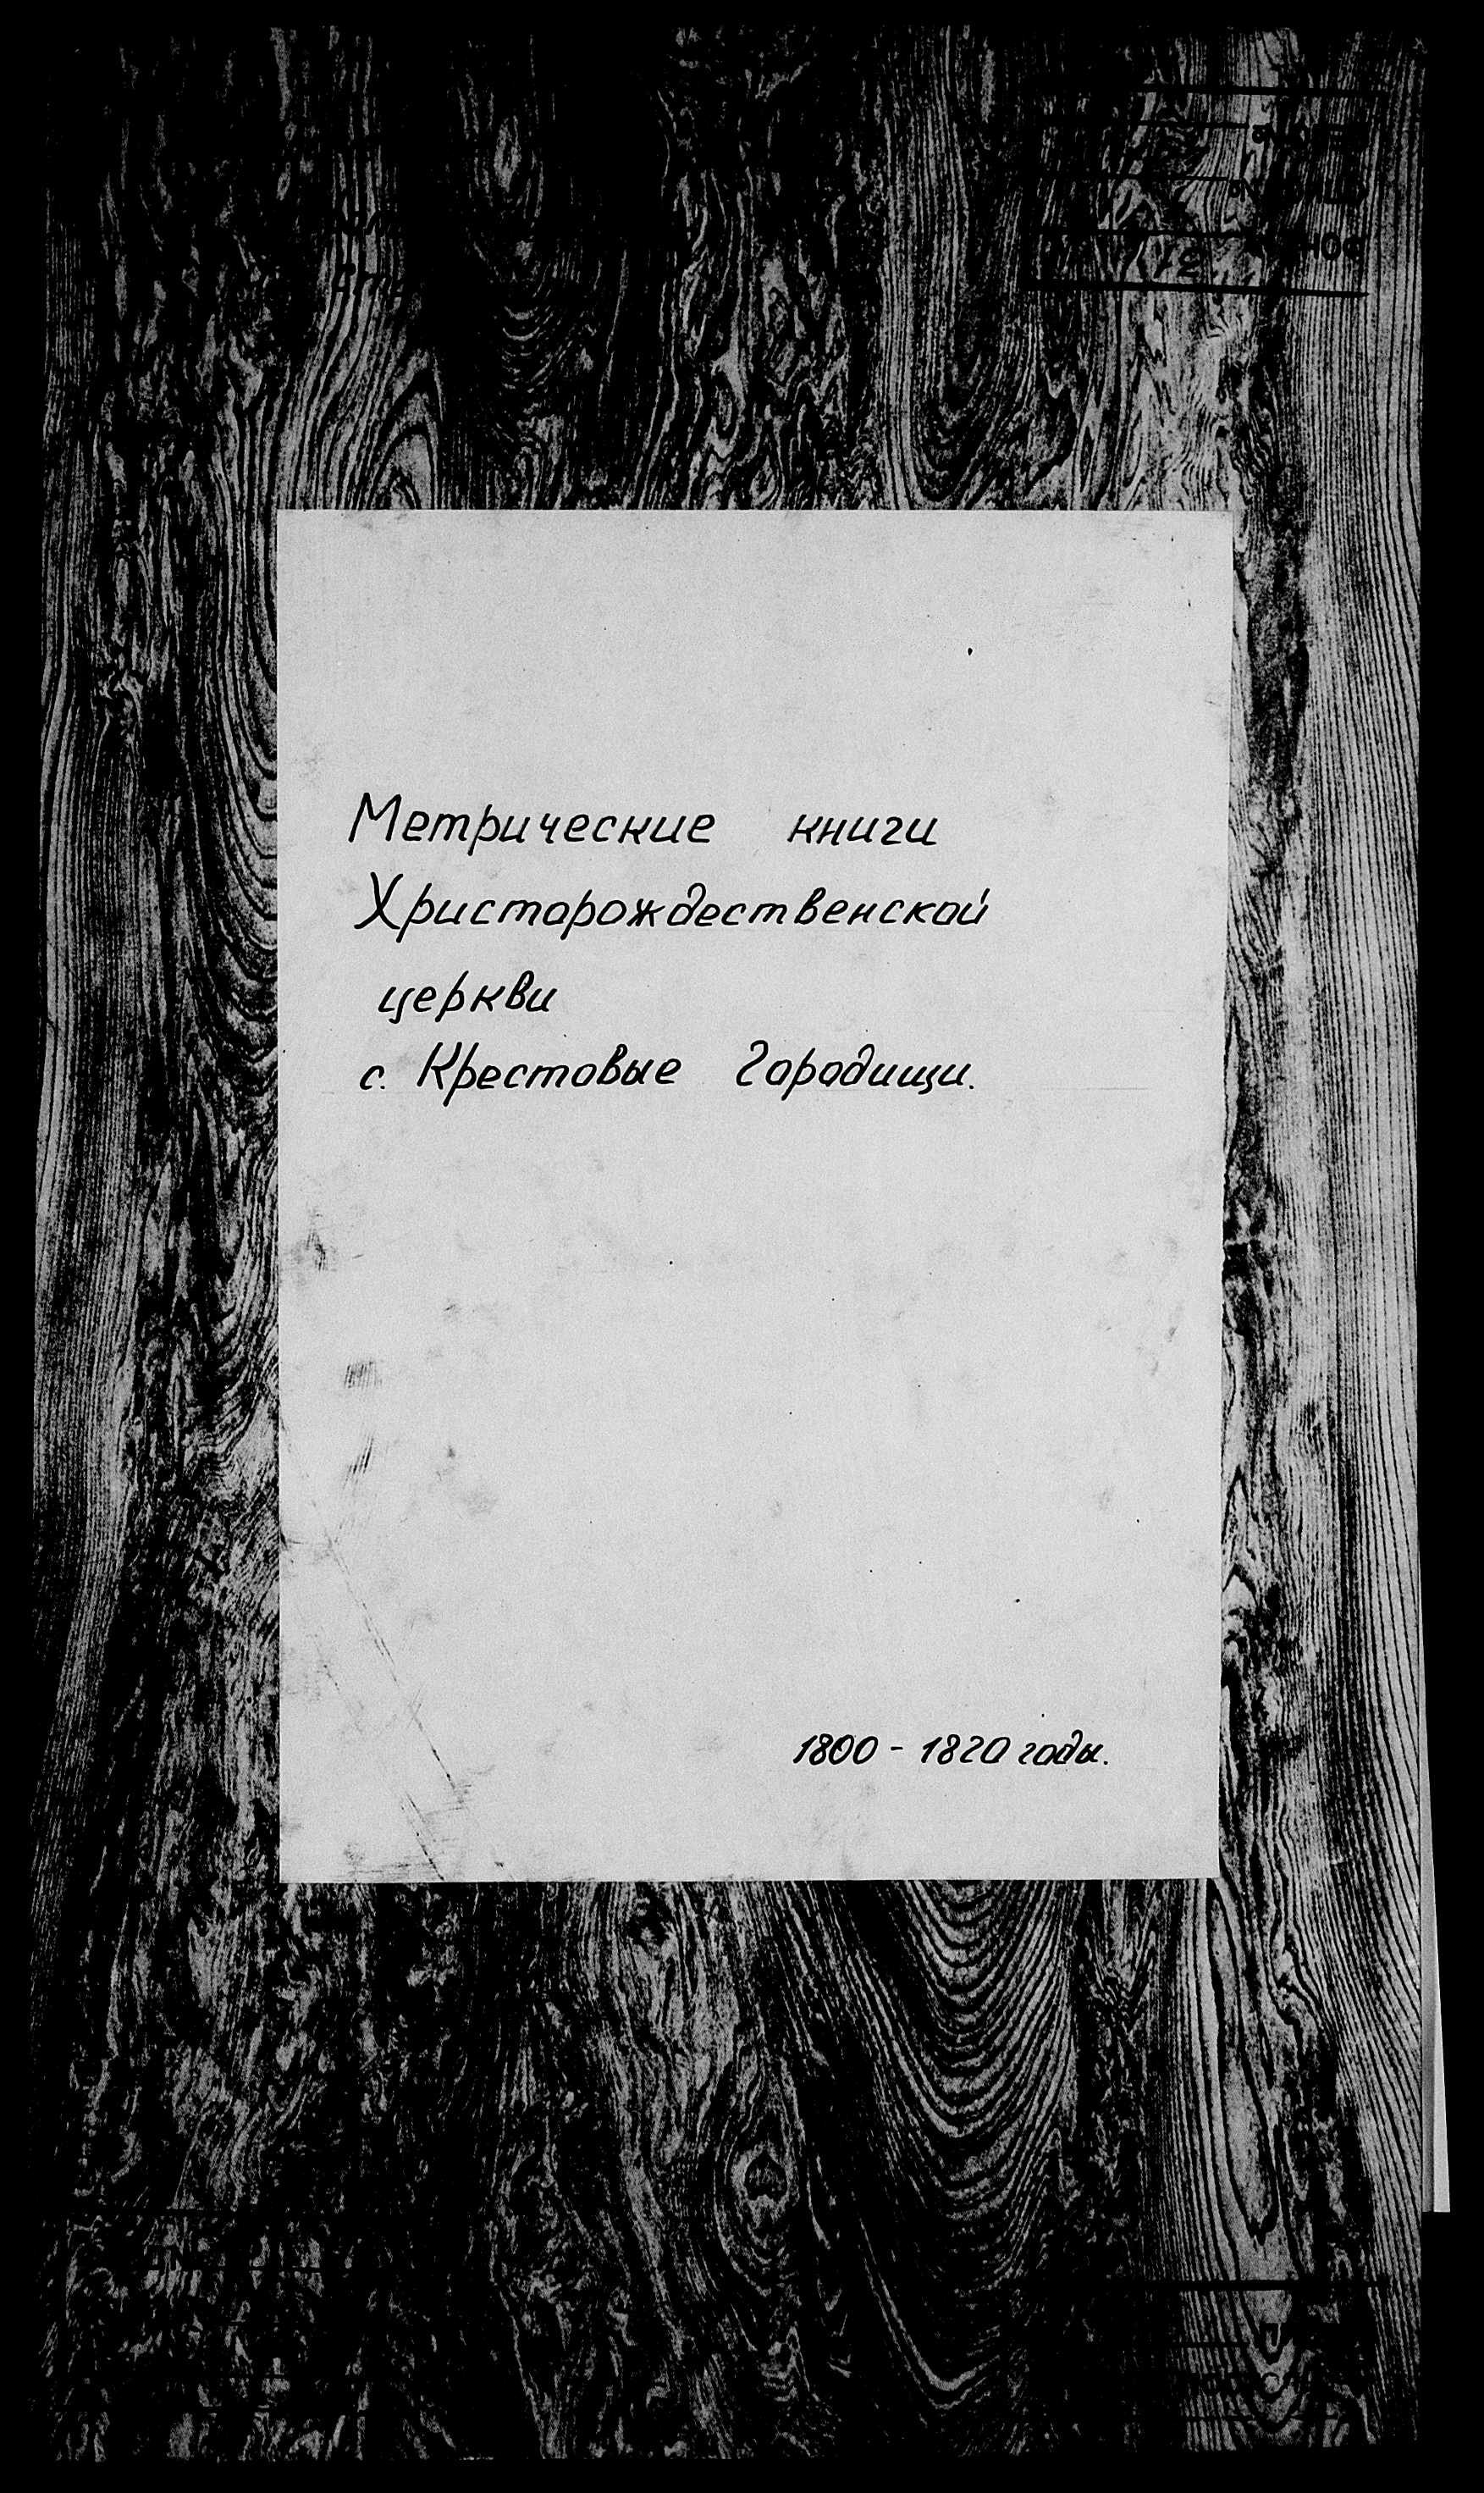 Метрические книги
Христорождественской
церкви
с. Крестовые Городищи.
1800 - 1820 годы.